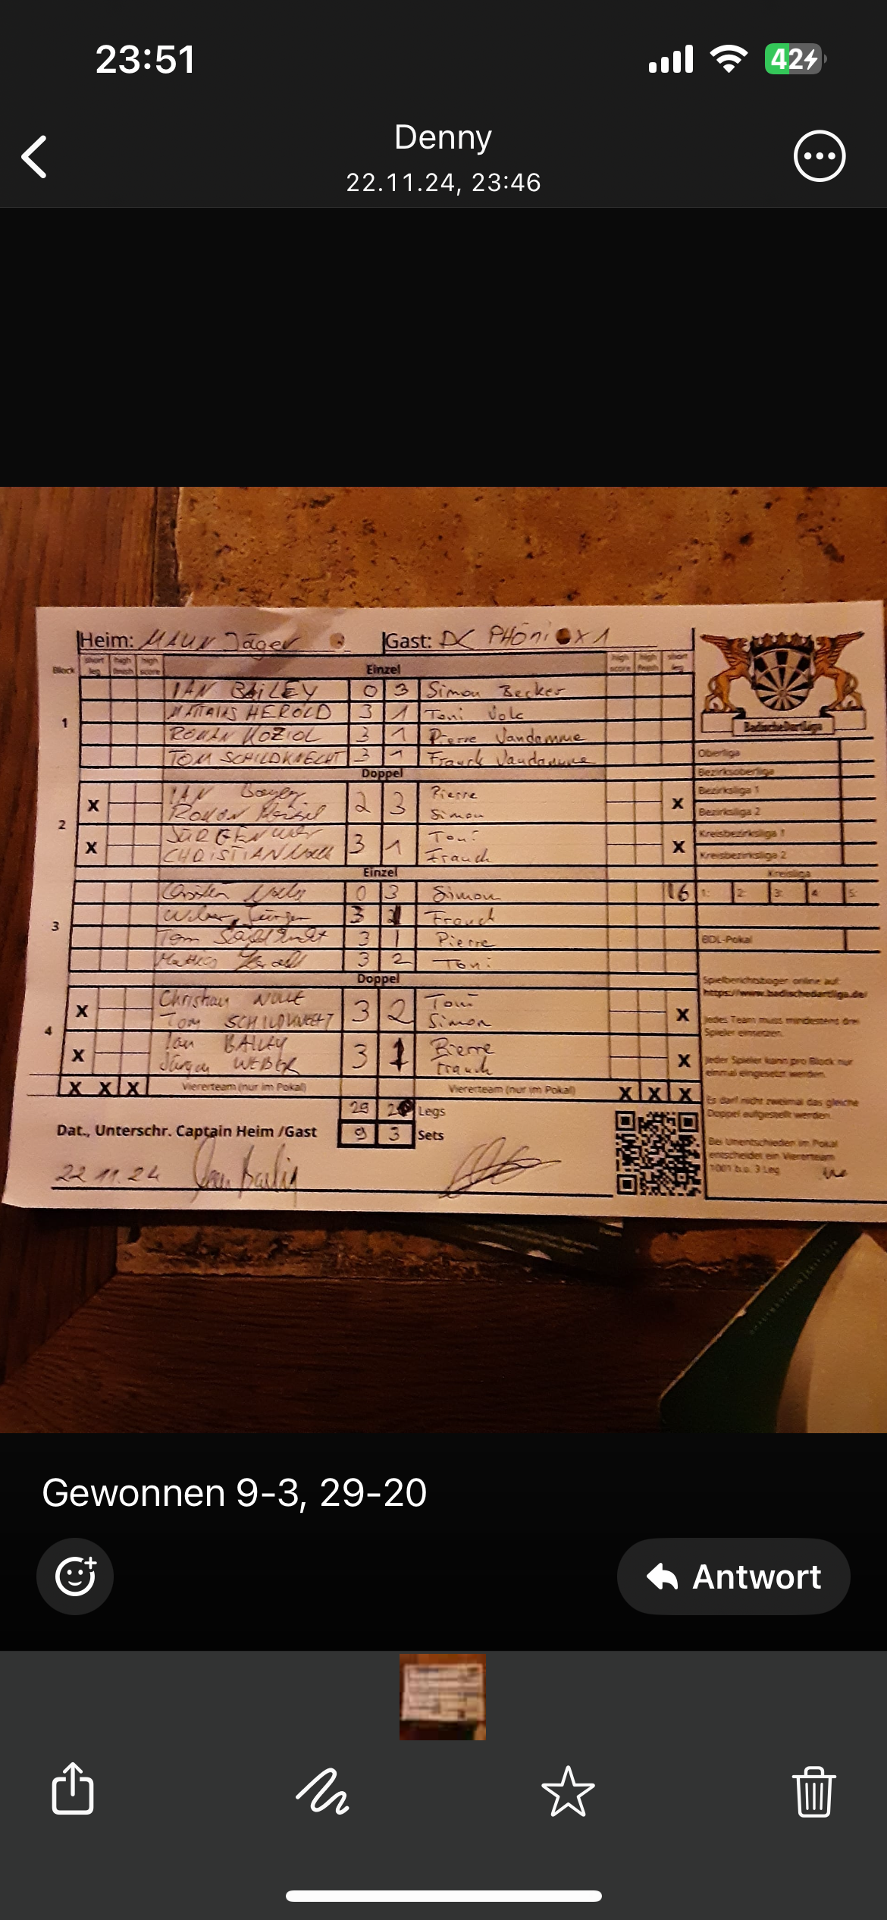 23:51
42
Denny
22.11.24, 23:46
Heim: MAUN Jäger Gast: DC PHÖNIX 1
Block short leg high finish high score Einzel high score high finish short leg
BadischeDartliga
1
IAN BAILEY 0 3 Simon Becker
MATTHIAS HEROLD 3 1 Toni Volk
ROMAN KOZIOL 3 1 Pierre Vandamme
TOM SCHILDKNECHT 3 1 Franck Vandamme
Oberliga
Doppel
Bezirksoberliga
Bezirksliga 1
2
X IAN 2 3 Pierre X
Simon
Bezirksliga 2
X JÜRGEN 3 1 Toni X
CHRISTIAN Franck
Kreisbezirksliga 1
Kreisbezirksliga 2
Einzel
Kreisliga
1: 2: 3: 4: 5:
3
0 3 Simon 16
3 Franck
Tom 3 1 Pierre
3 2 Toni
BDL-Pokal
Doppel
4
X Christian 3 2 Toni X
TOM SCHILDKNECHT Simon
X Ian BAILEY 3 1 Pierre X
Jürgen WEBER Franck
X X X Viererteam (nur im Pokal) Viererteam (nur im Pokal) X X X
29 20 Legs
Dat., Unterschr. Captain Heim /Gast 9 3 Sets
22.11.24
Spielberichtsbogen online auf:
https://www.badischedartliga.de/
Jedes Team muss mindestens drei
Spieler einsetzen.
Jeder Spieler kann pro Block nur
einmal eingesetzt werden.
Es darf nicht zweimal das gleiche
Doppel aufgestellt werden.
Bei Unentschieden im Pokal
entscheidet ein Viererteam
1001 b.o. 3 Leg
Gewonnen 9-3, 29-20
Antwort